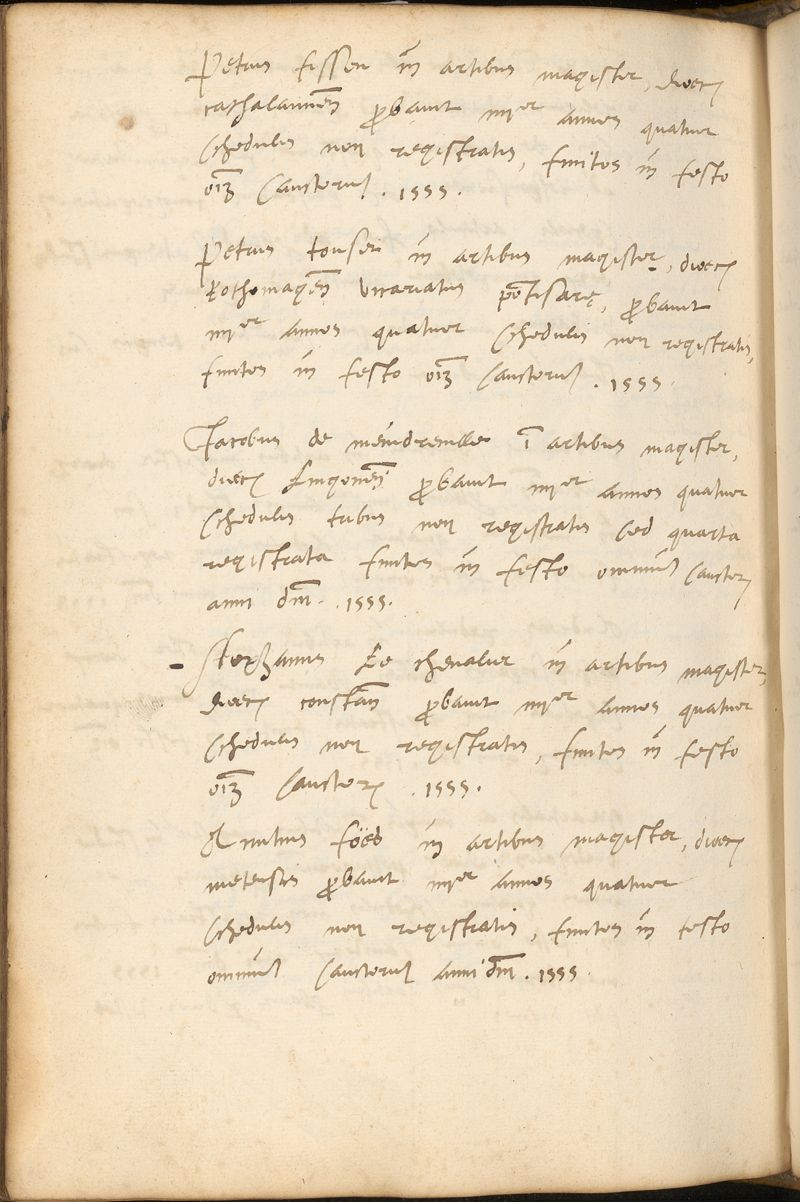 Petrus fissen in artibus magister, dioec
cathalaunen̄ ꝓbauit iiijer annos quatuor
schedulis non registratis, finitos in festo
oīm sanctorum . 1555 .
Petrus touser in artibus magister, dioec
Rothomageñ vicariatus pōtisarę, ꝓbauit
iiijer annos quatuor schedulis non registratis,
finitos in festo oīm sanctorum . 1555 .
Jacobus de in artibus magister,
dioec lingoneñ ꝓbauit iiijer annos quatuor
schedulis tribus non registratis sed quarta
registrata finitos in festo omnium sanctor
anni dm̄ . 1555 .
Stephanus Le chevalier in artibus magister,
dioec constan̄ ꝓbauit iiijer annos quatuor
schedulis non registratis, finitos in festo
oīm sanctor . 1555 .
foës in artibus magister, dioec
metensis ꝓbauit iiijer annos quatuor
schedulis non registratis, finitos in festo
omnium sanctorum anni dm̄ . 1555 .